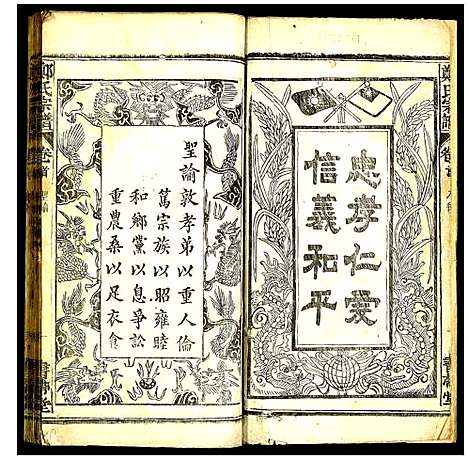 鄭氏宗譜
卷首
忠孝仁愛
信義和平
聖諭敦孝弟以重人倫
篤宗族以昭雍睦
和鄉黨以息爭訟
重農桑以足衣食
鄭氏宗譜
卷首
聖諭